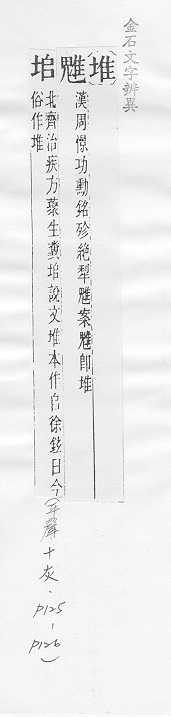 金石文字辨異
(堆)魋
漢周憬功勳銘殄絕犁魋案魋卽堆
垖
北齊治疾方藥生糞垖說文堆本作𠂤徐鉉曰今
俗作堆
(平聲十灰．p125-p126)